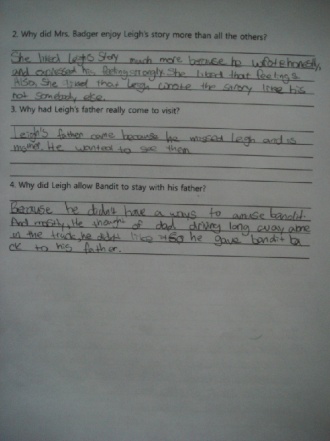 2. Why did Mrs. Badger enjoy Leigh's story more than all the others?
She liked Leigh's story much more because he wrote honestly,
and expressed his feeling strongly. She liked that feelings.
Also, She liked that Leigh wrote the story like his
not somebody else.
3. Why had Leigh's father really come to visit?
Leigh's father came because he missed Leigh and is
mother. He wanted to see them
4. Why did Leigh allow Bandit to stay with his father?
Because he didn't have a ways to amuse bandit.
And mostly, He thought of dad driving long away alone
in the truck, he didn't like he gave bandit ba
ck to his father.